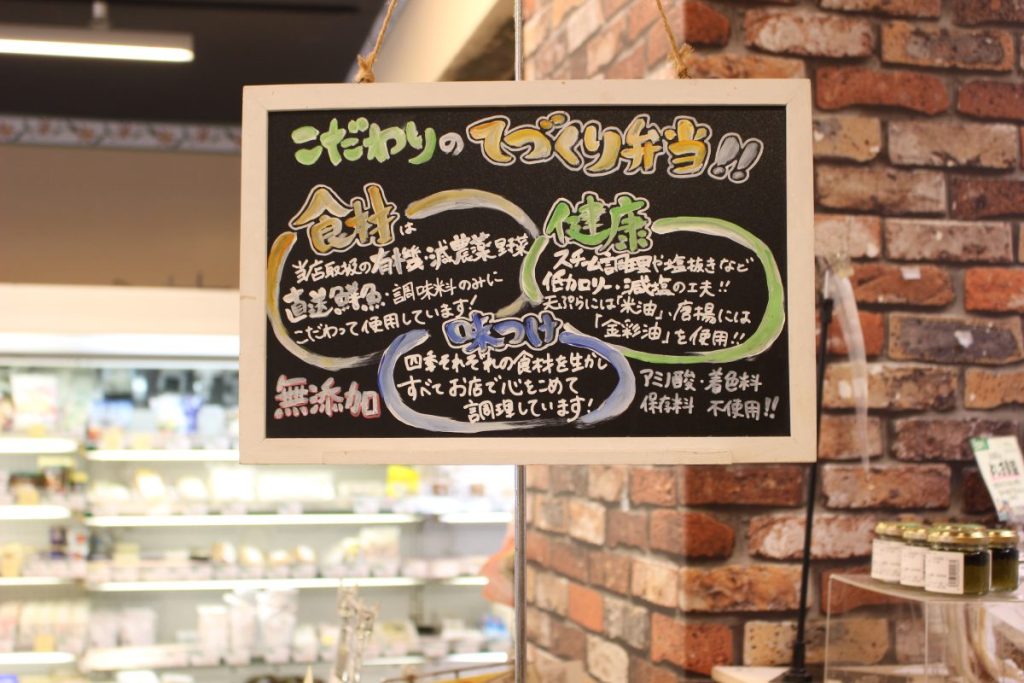 こだわりの てづくり弁当!!
食材は
当店取扱の有機・減農薬野菜
直送鮮魚・調味料のみに
こだわって使用しています!
健康
スチーム調理や塩抜きなど
低カロリー・減塩の工夫!!
天ぷらには「米油」・唐揚には
「金彩油」を使用!!
味つけ
四季それぞれの食材を生かし
すべてお店で心をこめて
調理しています!
無添加
アミノ酸・着色料
保存料 不使用!!